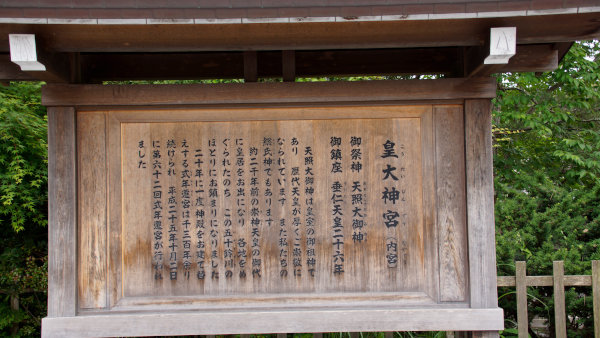 皇大神宮（内宮）
こうたいじんぐう
御祭神　天照大御神
あまてらすおおみかみ
御鎮座　垂仁天皇二十六年
天照大御神は皇室の御祖神で
あり　歴代天皇が厚くご崇敬に
なられています　また私たちの
総氏神でもあります
約二千年前の崇神天皇の御代
に皇居をお出になり　各地をめ
ぐられたのち　この五十鈴川の
ほとりにお鎮まりになりました
二十年に一度神殿をお建て替
えする式年遷宮は千三百年余り
続けられ　平成二十五年十月二日
に第六十二回式年遷宮が行われ
ました